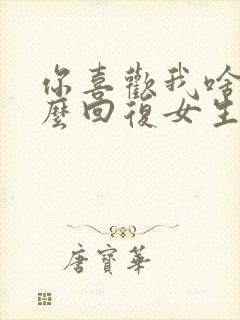 你喜歡我啥
麼回復女生
唐寶華